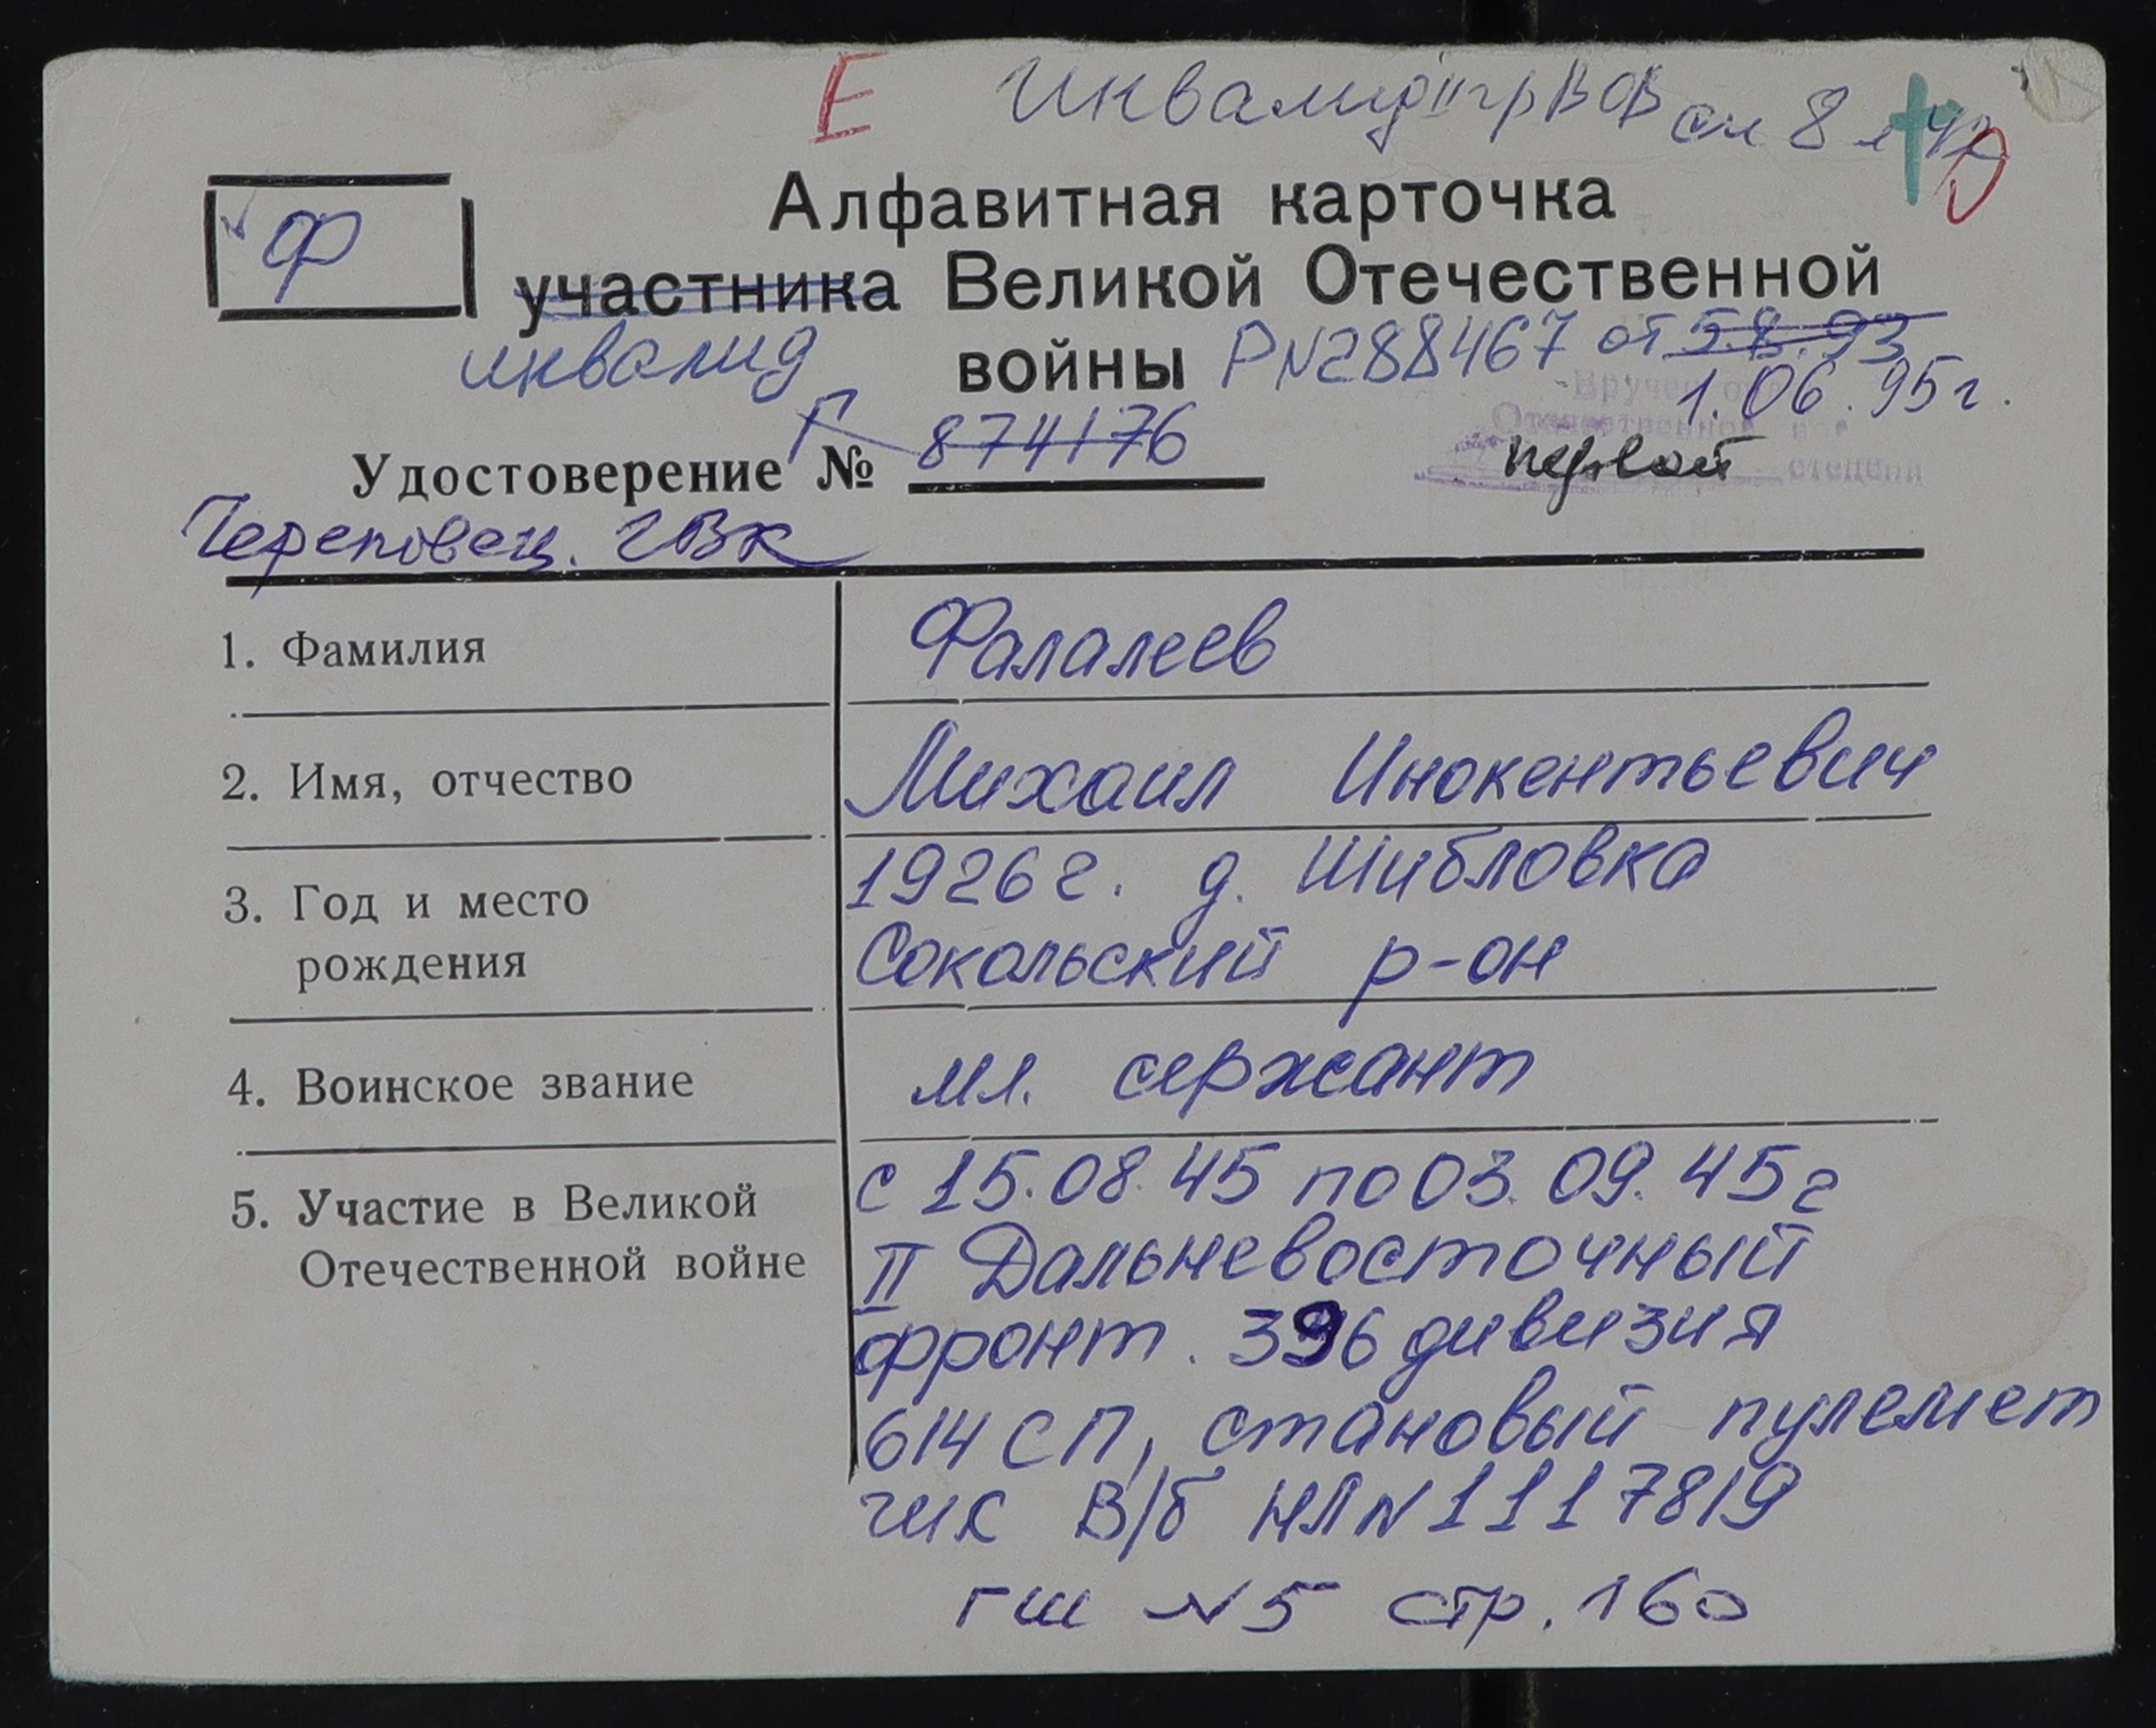 Е Инвалид II гр ВОВ см 8 л 42
Ф
Алфавитная карточка
участника Великой Отечественной
инвалид войны Р №288467 от 5.8.93
1.06.95г.
Вручен орден
Отечественной войны
первой степени
Удостоверение Г № 874176
Череповец. ГВК
1. Фамилия Фалалеев
2. Имя, отчество Михаил Инокентьевич
3. Год и место 1926г. д. Шибловка
рождения Сокольский р-он
4. Воинское звание мл. сержант
5. Участие в Великой с 15.08.45 по 03.09.45г
Отечественной войне II Дальневосточный
фронт. 396 дивизия
614 СП, становый пулемет
чик В/б НЛ N 1117819
ГШ N5 стр. 160